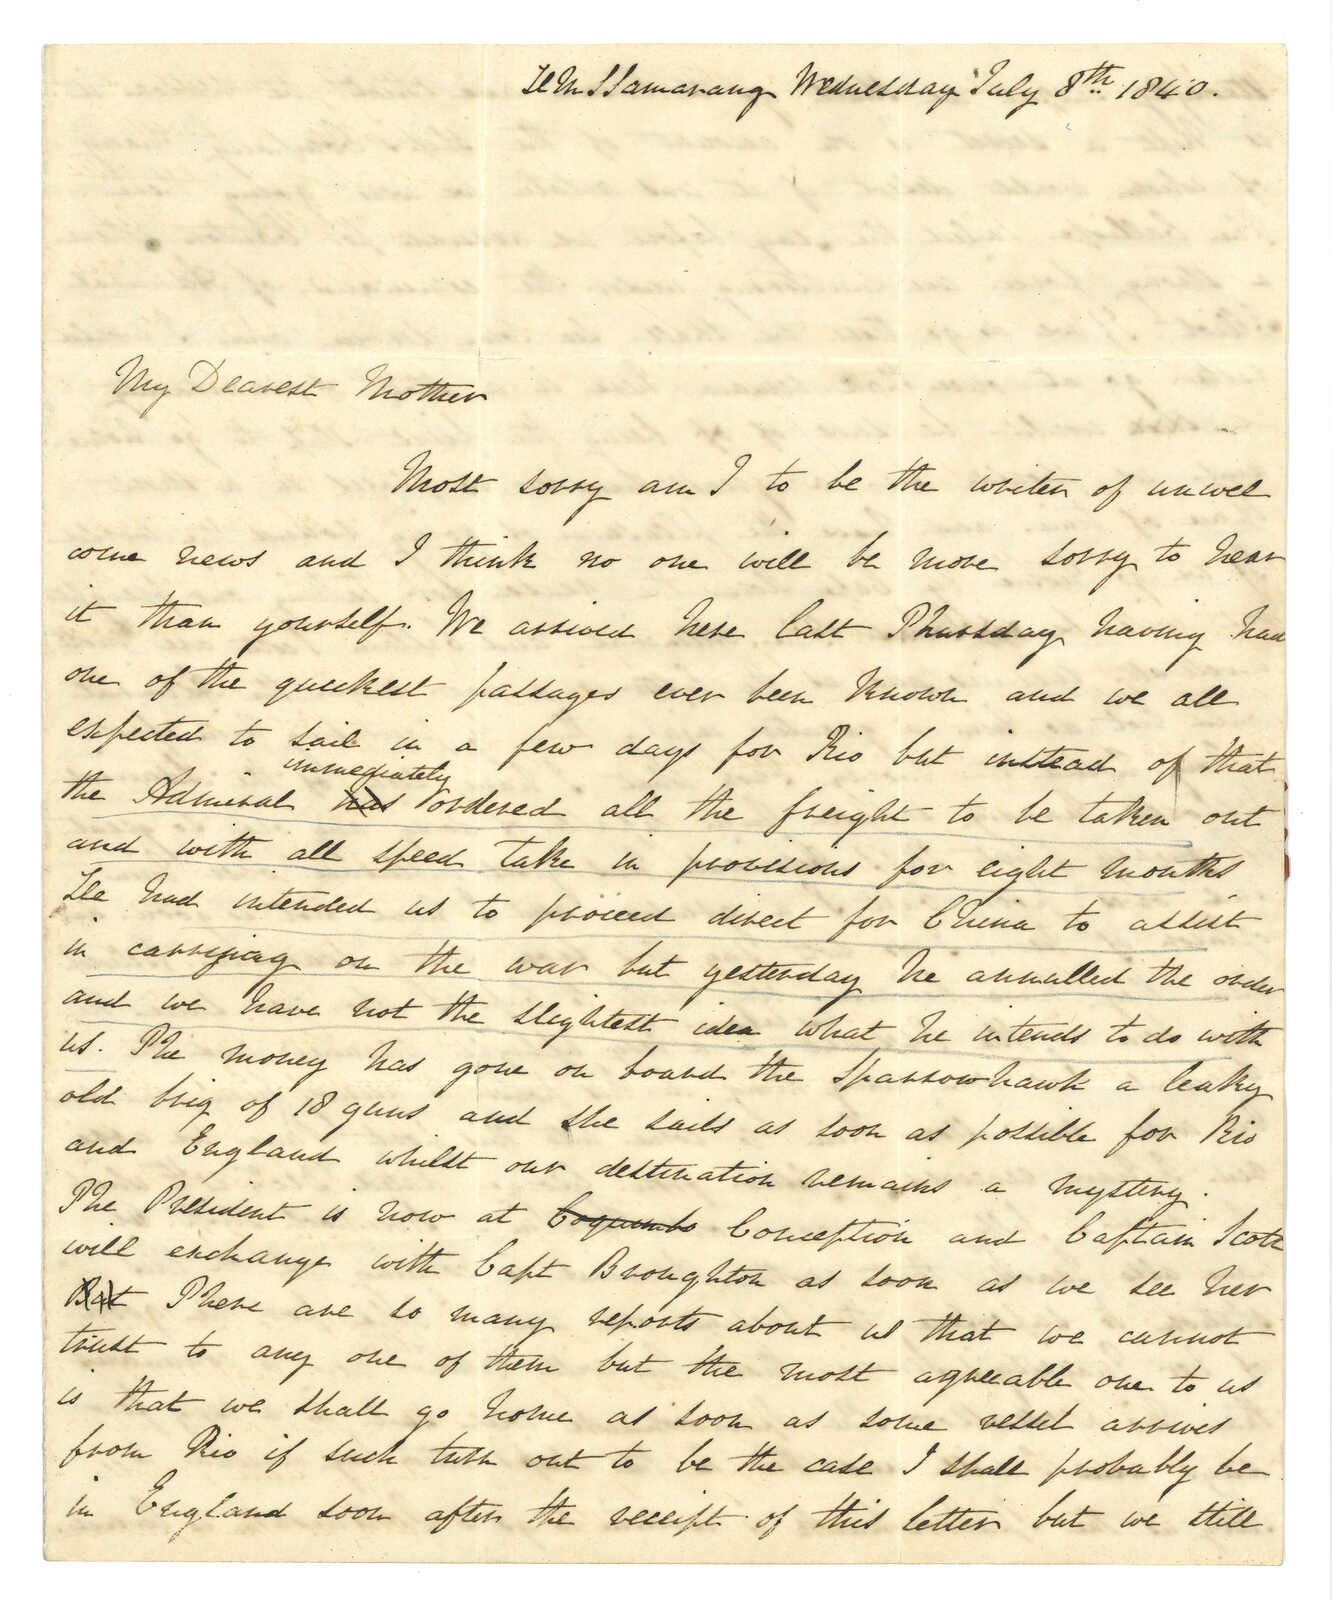 HMS Samarang Wednesday July 8th 1840.
My Dearest Mother
Most sorry am I to be the writer of unwel
come news and I think no one will be more sorry to hear
it than yourself. We arrived here last Thursday having had
one of the quickest passages ever been known and we all
expected to sail in a few days for Rio but instead of that
immediately
the Admiral has ordered all the freight to be taken out
and with all speed take in provisions for eight months
He had intended us to proceed direct for China to assist
in carrying on the war but yesterday he annulled the order
and we have not the slightest idea what he intends to do with
us. The money has gone on board the Sparrowhawk a leaky
old brig of 18 guns and she sails as soon as possible for Rio
and England whilst our destination remains a mystery.
The President is now at Coquimbo Conception and Captain Scott
will exchange with Capt Broughton as soon as we see her
But There are so many reports about us that we cannot
trust to any one of them but the most agreeable one to us
is that we shall go home as soon as some vessel arrives
from Rio if such turn out to be the case I shall probably be
in England soon after the receipt of this letter but we still